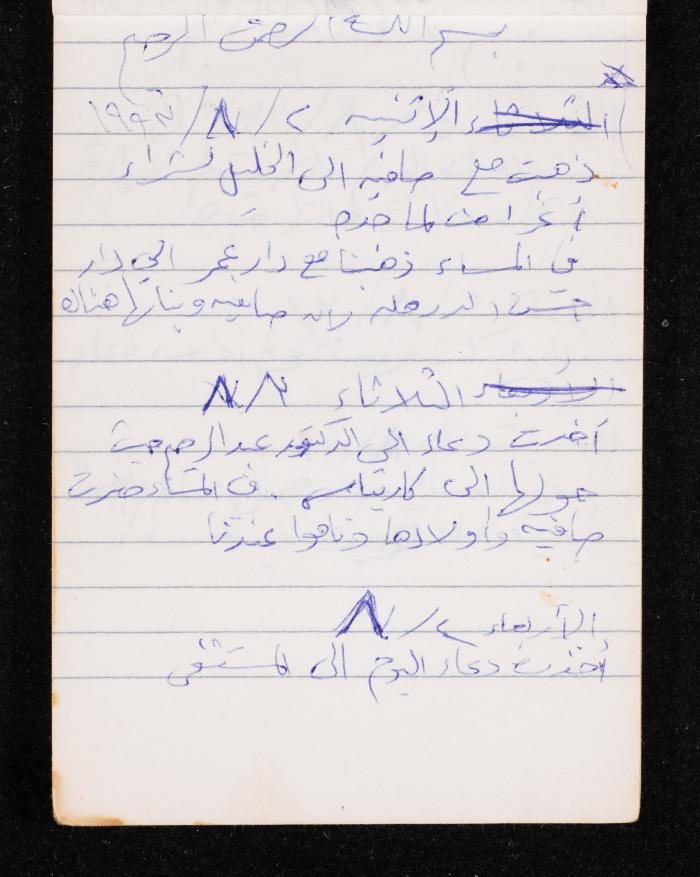 بسم الله الرحمن الرحيم
الثلاثاء الإثنين ٢ / ٨ / ١٩٩٣
ذهبت مع صافيه الى الخليل لشراء
أغراض
في المساء ذهبنا مع دار عمر الي دار
حسن لان صافيه وبناتها هناك
الأربعاء الثلاثاء ٨/٣
أخذت دعاء الى الدكتور عبد الرحيم حيث
حولها الى كاريتاس . في المساء حضرت
صافيه وأولادها وناموا عندنا
الأربعاء ٢/٨
أخذت دعاء اليوم الى المستشفى